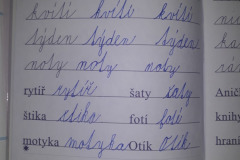 kvítí kvítí kvítí
týden týden týden
noty noty noty
rytíř rytíř šaty šaty
štika štika fotí fotí
motyka motyka Otík Otík
Anič
knihy
hrani